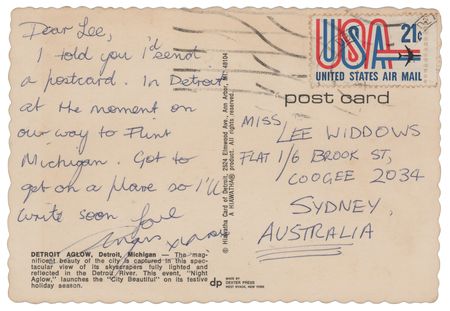 Dear Lee,
I told you I'd send
a postcard. In Detroit
at the moment on
our way to Flint
Michigan. Got to
get on a plane so I'll
write soon Love
DETROIT AGLOW, Detroit, Michigan — The mag-
nificent beauty of the city is captured in this spec-
tacular view of its skyscrapers fully lighted and
reflected in the Detroit River. This event, "Night
Aglow," launches the "City Beautiful" on its festive
holiday season.
© Hiawatha Card of Detroit, 2924 Ellmwood Ave., Ann Arbor, MI 48104
A HIAWATHA® product. All rights reserved
dp
MADE BY
DEXTER PRESS
WEST NYACK, NEW YORK
USA 21c
UNITED STATES AIR MAIL
post card
MISS LEE WIDDOWS
FLAT 1/6 BROOK ST,
COOGEE 2034
SYDNEY,
AUSTRALIA